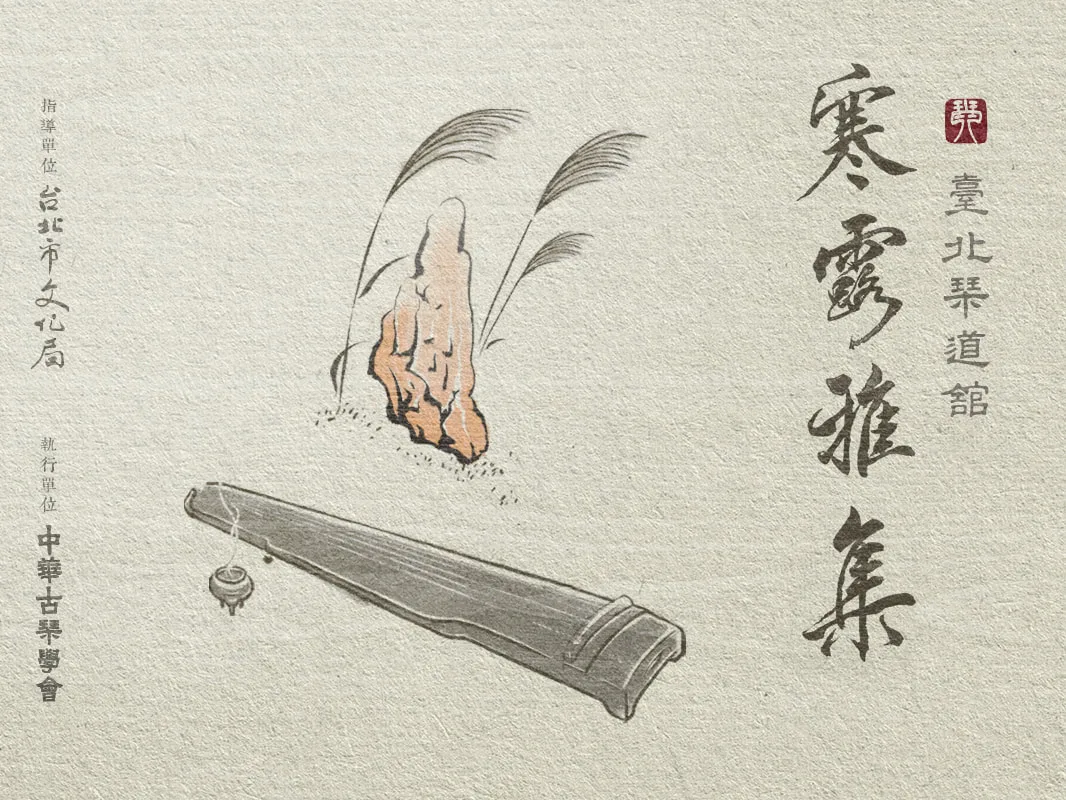 琴
臺北琴道館
寒露雅集
指導單位 台北市文化局
執行單位 中華古琴學會